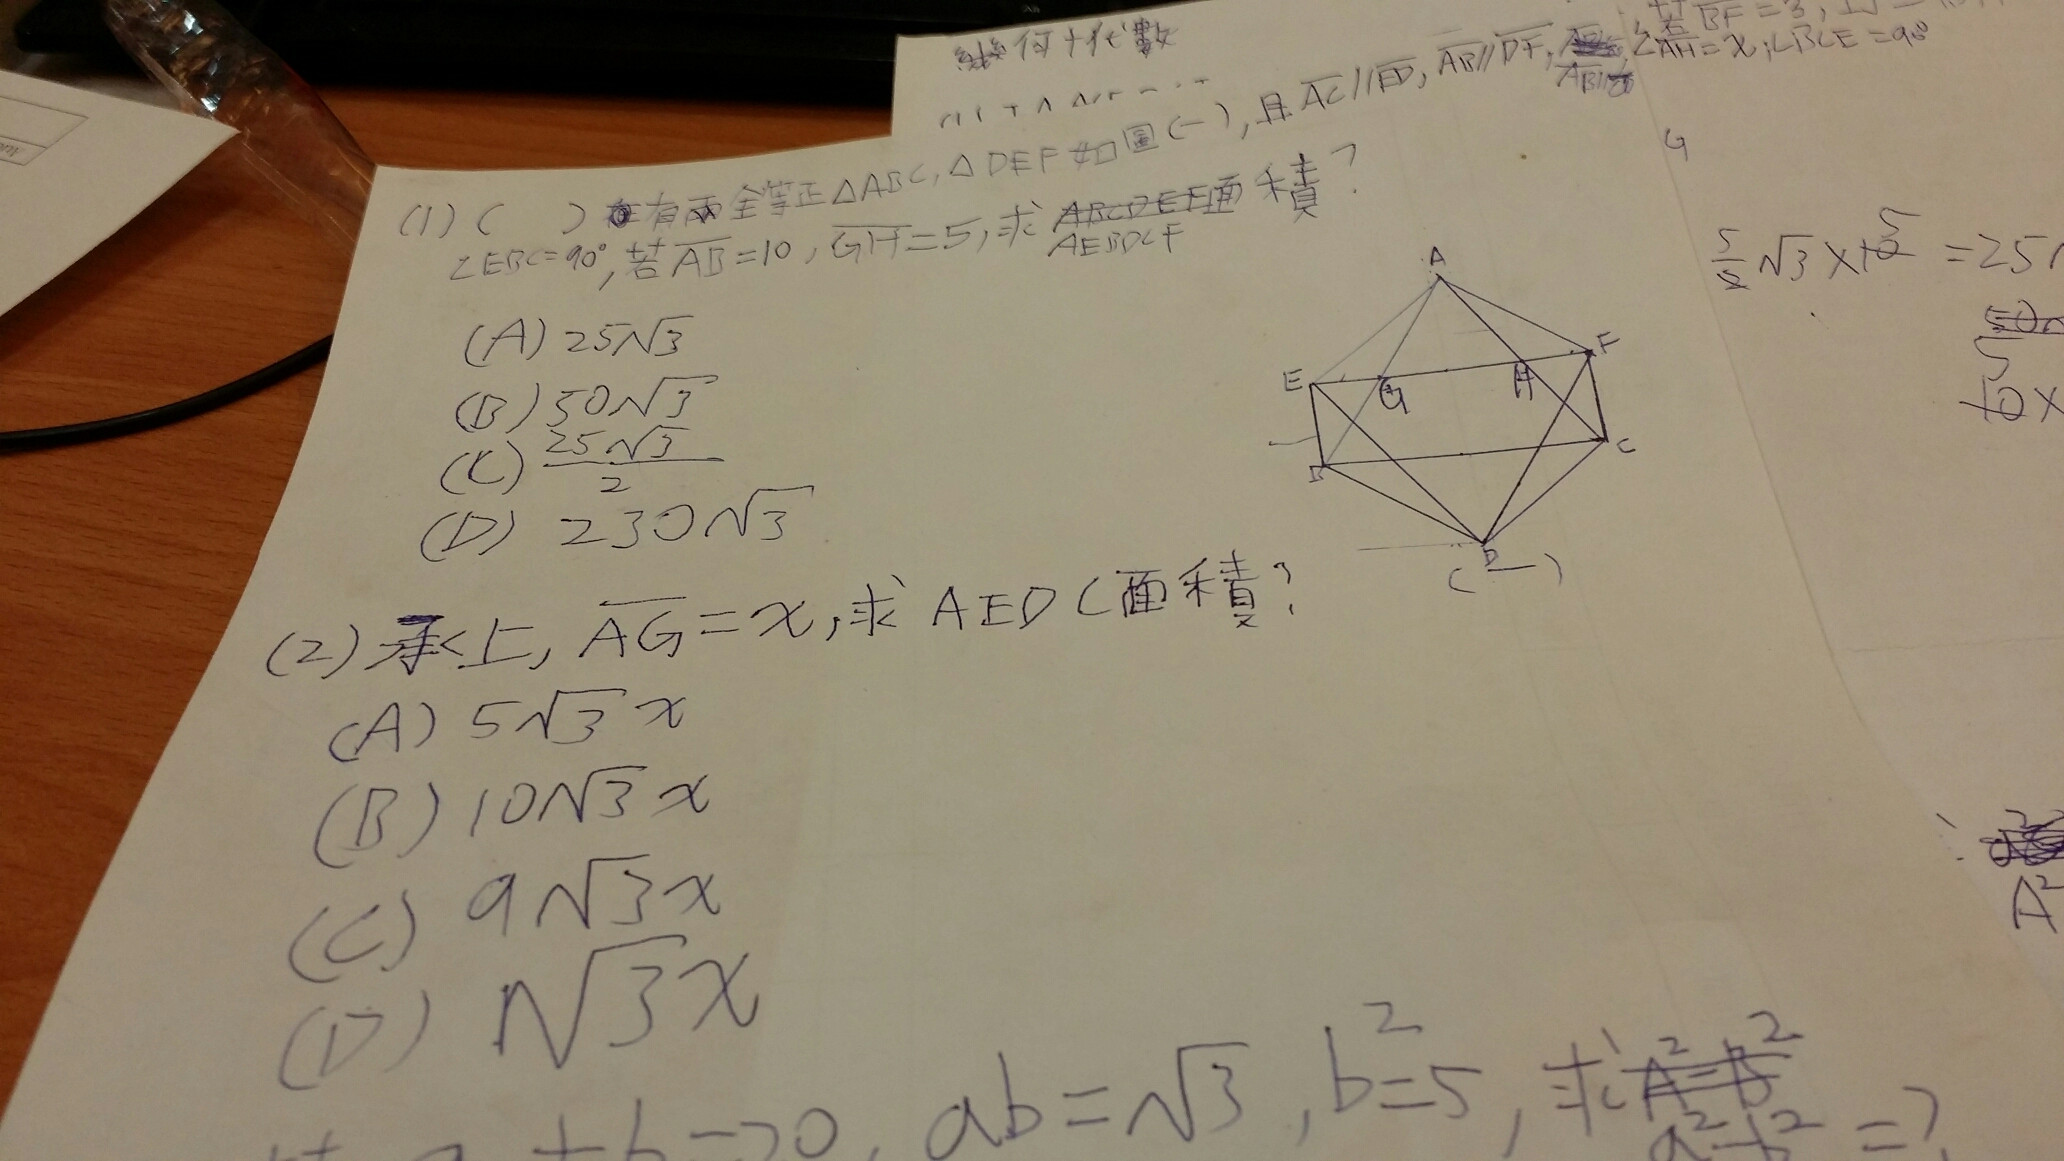 幾何+代數
(1) ( ) 有兩全等正△ABC,△DEF如圖(一),且AC//ED,AB//DF,
∠EBC=90°,若AB=10,GH=5,求AEBDCF面積?
(A) 25√3
(B) 50√3
(C) 25√3/2
(D) 230√3
A
E
F
G
H
B
C
D
(一)
(2) 承上,AG=x,求AEDC面積?
(A) 5√3x
(B) 10√3x
(C) 9√3x
(D) √3x
ab=√3,b²=5,求
a²-b²=?
BF=3,
AH=x,∠BCE=90°
G
=25
A²